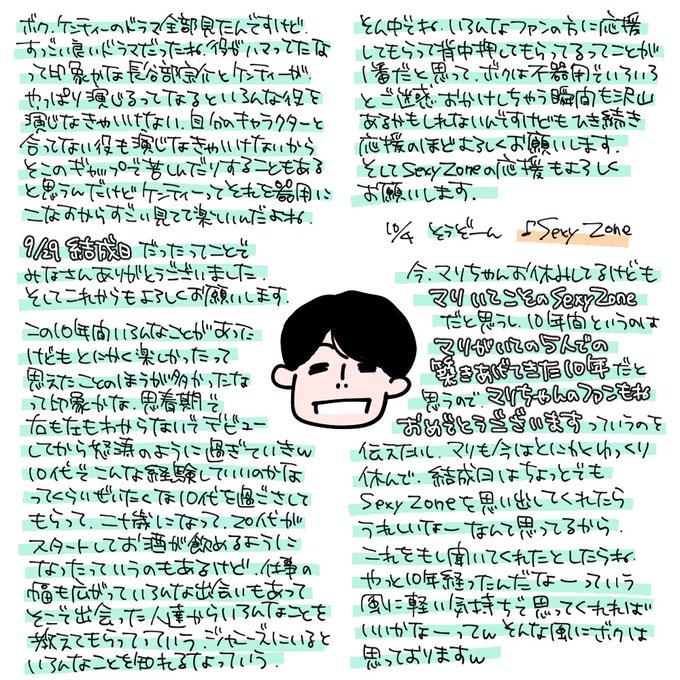 ボク、ケンティーのドラマ全部見たんですけど、
すっごい良いドラマだったね。役がハマってたな
って印象かな長谷部宗介とケンティーが。
やっぱり演じるってなるといろんな役を
演じなきゃいけない、自分のキャラクターと
合ってない役も演じなきゃいけないから
そこのギャップで苦しんだりすることもある
と思うんだけどケンティーってそれを器用に
こなすからすごい見てて楽しいんだよね。
9/29 結成日 だったってことで
みなさんありがとうございました。
そしてこれからもよろしくお願いします。
この10年間いろんなことがあった
けどもとにかく楽しかったって
思えたことのほうが多かったな
って印象かな。思春期で
右も左もわからないでデビュー
してから怒涛のように過ぎていきw
10代でこんな経験していいのかな
ってくらいぜいたくな10代を過ごさして
もらって、二十歳になって、20代が
スタートしてお酒が飲めるように
なったっていうのもあるけど、仕事の
幅も広がっていろんな出会いもあって
そこで出会った人達からいろんなことを
教えてもらってっていう。ジャニーズにいると
いろんなことを知れるなっていう。
そん中でね、いろんなファンの方に応援
してもらって背中押してもらってるってことが
1番だと思って、ボクは不器用でいろいろ
とご迷惑おかけしちゃう瞬間も沢山
あるかもしれないんですけどもひき続き
応援のほどよろしくお願いします。
そしてSexy Zoneの応援もよろしく
お願いします。
10/4 そうぞーん ♪Sexy Zone
今、マリちゃんお休みしてるけども
マリいてこそのSexy Zone
だと思うし、10年間というのは
マリがいての5人での
築きあげてきた10年だと
思うので、マリちゃんのファンもね
おめでとうございますっていうのを
伝えたいし、マリも今はとにかくゆっくり
休んで、結成日はちょっとでも
Sexy Zoneを思い出してくれたら
うれしいなーなんて思ってるから、
これをもし聞いてくれたとしたらね
やっと10年経ったんだなーっていう
風に軽い気持ちで思ってくれれば
いいかなーってw そんな風にボクは
思っておりますw